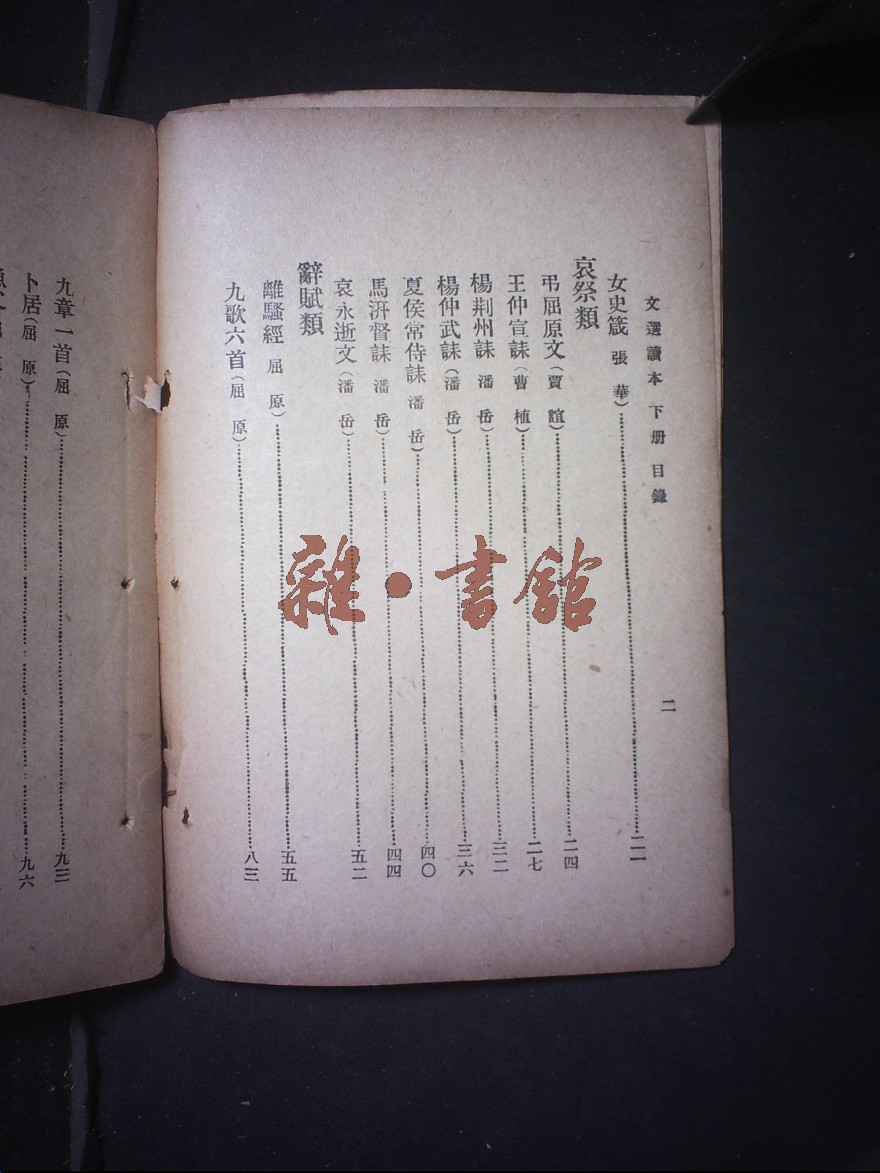 文選讀本 下册 目錄 二
女史箴 張 華)……二一
哀祭類
弔屈原文(賈 誼)……二四
王仲宣誄(曹 植)……二七
楊荆州誄 潘 岳)……三二
楊仲武誄(潘 岳)……三六
夏侯常侍誄 潘 岳)……四〇
馬汧督誄 潘 岳)……四四
哀永逝文(潘 岳)……五二
辭賦類
離騷經 屈 原)……五五
九歌六首(屈 原)……八三
九章一首(屈 原)……九三
卜居(屈 原)……九六
雜·書館